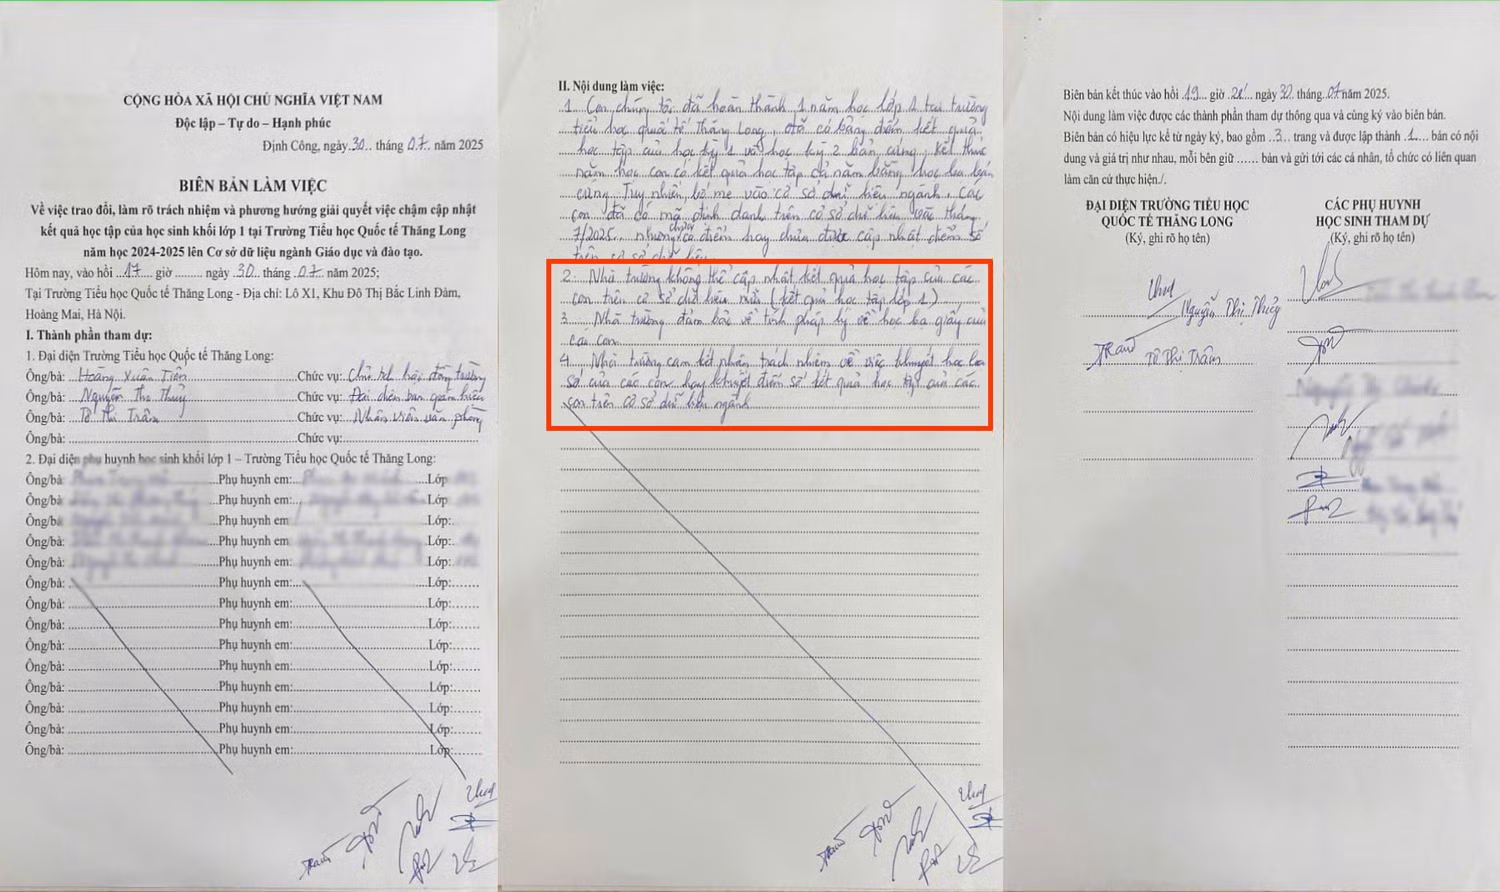 CỘNG HÒA XÃ HỘI CHỦ NGHĨA VIỆT NAM
Độc lập – Tự do – Hạnh phúc
Định Công, ngày 30.. tháng 07. năm 2025
BIÊN BẢN LÀM VIỆC
Về việc trao đổi, làm rõ trách nhiệm và phương hướng giải quyết việc chậm cập nhật
kết quả học tập của học sinh khối lớp 1 tại Trường Tiểu học Quốc tế Thăng Long
năm học 2024-2025 lên Cơ sở dữ liệu ngành Giáo dục và đào tạo.
Hôm nay, vào hồi ..17.. giờ ........ ngày 30. tháng 07. năm 2025;
Tại Trường Tiểu học Quốc tế Thăng Long - Địa chỉ: Lô X1, Khu Đô Thị Bắc Linh Đàm,
Hoàng Mai, Hà Nội.
I. Thành phần tham dự:
1. Đại diện Trường Tiểu học Quốc tế Thăng Long:
Ông/bà: Hoàng Xuân Tiến Chức vụ: Chủ tịch hội đồng trường
Ông/bà: Nguyễn Thị Thủy Chức vụ: Đại diện ban giám hiệu
Ông/bà: Tô Thị Trâm Chức vụ: Nhân viên văn phòng
Ông/bà: Chức vụ:
2. Đại diện phụ huynh học sinh khối lớp 1 – Trường Tiểu học Quốc tế Thăng Long:
Ông/bà: Phụ huynh em: Lớp
Ông/bà: Phụ huynh em: Lớp:
Ông/bà: Phụ huynh em Lớp:
Ông/bà: Phụ huynh em: Lớp:
Ông/bà: Phụ huynh em: Lớp:
Ông/bà: Phụ huynh em: Lớp:
Ông/bà: Phụ huynh em: Lớp:
Ông/bà: Phụ huynh em: Lớp:
Ông/bà: Phụ huynh em: Lớp:
Ông/bà: Phụ huynh em: Lớp:
Ông/bà: Phụ huynh em: Lớp:
Ông/bà: Phụ huynh em: Lớp:
Ông/bà: Phụ huynh em: Lớp:
Ông/bà: Phụ huynh em: Lớp:
II. Nội dung làm việc:
1. Con chúng tôi đã hoàn thành 1 năm học lớp 1 tại trường
tiểu học quốc tế Thăng Long, đã có bảng điểm kết quả
học tập của học kỳ 1 và học kỳ 2 bản cứng. Kết thúc
năm học con có kết quả học tập cả năm bằng học bạ bản
cứng. Tuy nhiên, bố mẹ vào cơ sở dữ liệu ngành, các
con đã có mã định danh trên cơ sở dữ liệu vào tháng
7/2025, nhưng chưa có điểm hay chưa được cập nhật điểm số
trên cơ sở dữ liệu.
2. Nhà trường không thể cập nhật kết quả học tập của các
con trên cơ sở dữ liệu nữa (kết quả học tập lớp 1)
3. Nhà trường đảm bảo về tính pháp lý về học bạ giấy của
các con.
4. Nhà trường cam kết nhận trách nhiệm về việc khuyết học bạ
số của các con hay khuyết điểm số kết quả học tập của các
con trên cơ sở dữ liệu ngành
Biên bản kết thúc vào hồi 19... giờ ngày 30 tháng 07 năm 2025.
Nội dung làm việc được các thành phần tham dự thông qua và cùng ký vào biên bản.
Biên bản có hiệu lực kể từ ngày ký, bao gồm ..3.. trang và được lập thành ..1.... bản có nội
dung và giá trị như nhau, mỗi bên giữ ...... bản và gửi tới các cá nhân, tổ chức có liên quan
làm căn cứ thực hiện./.
ĐẠI DIỆN TRƯỜNG TIỂU HỌC
QUỐC TẾ THĂNG LONG
(Ký, ghi rõ họ tên)
Nguyễn Thị Thủy
Tô Thị Trâm
CÁC PHỤ HUYNH
HỌC SINH THAM DỰ
(Ký, ghi rõ họ tên)